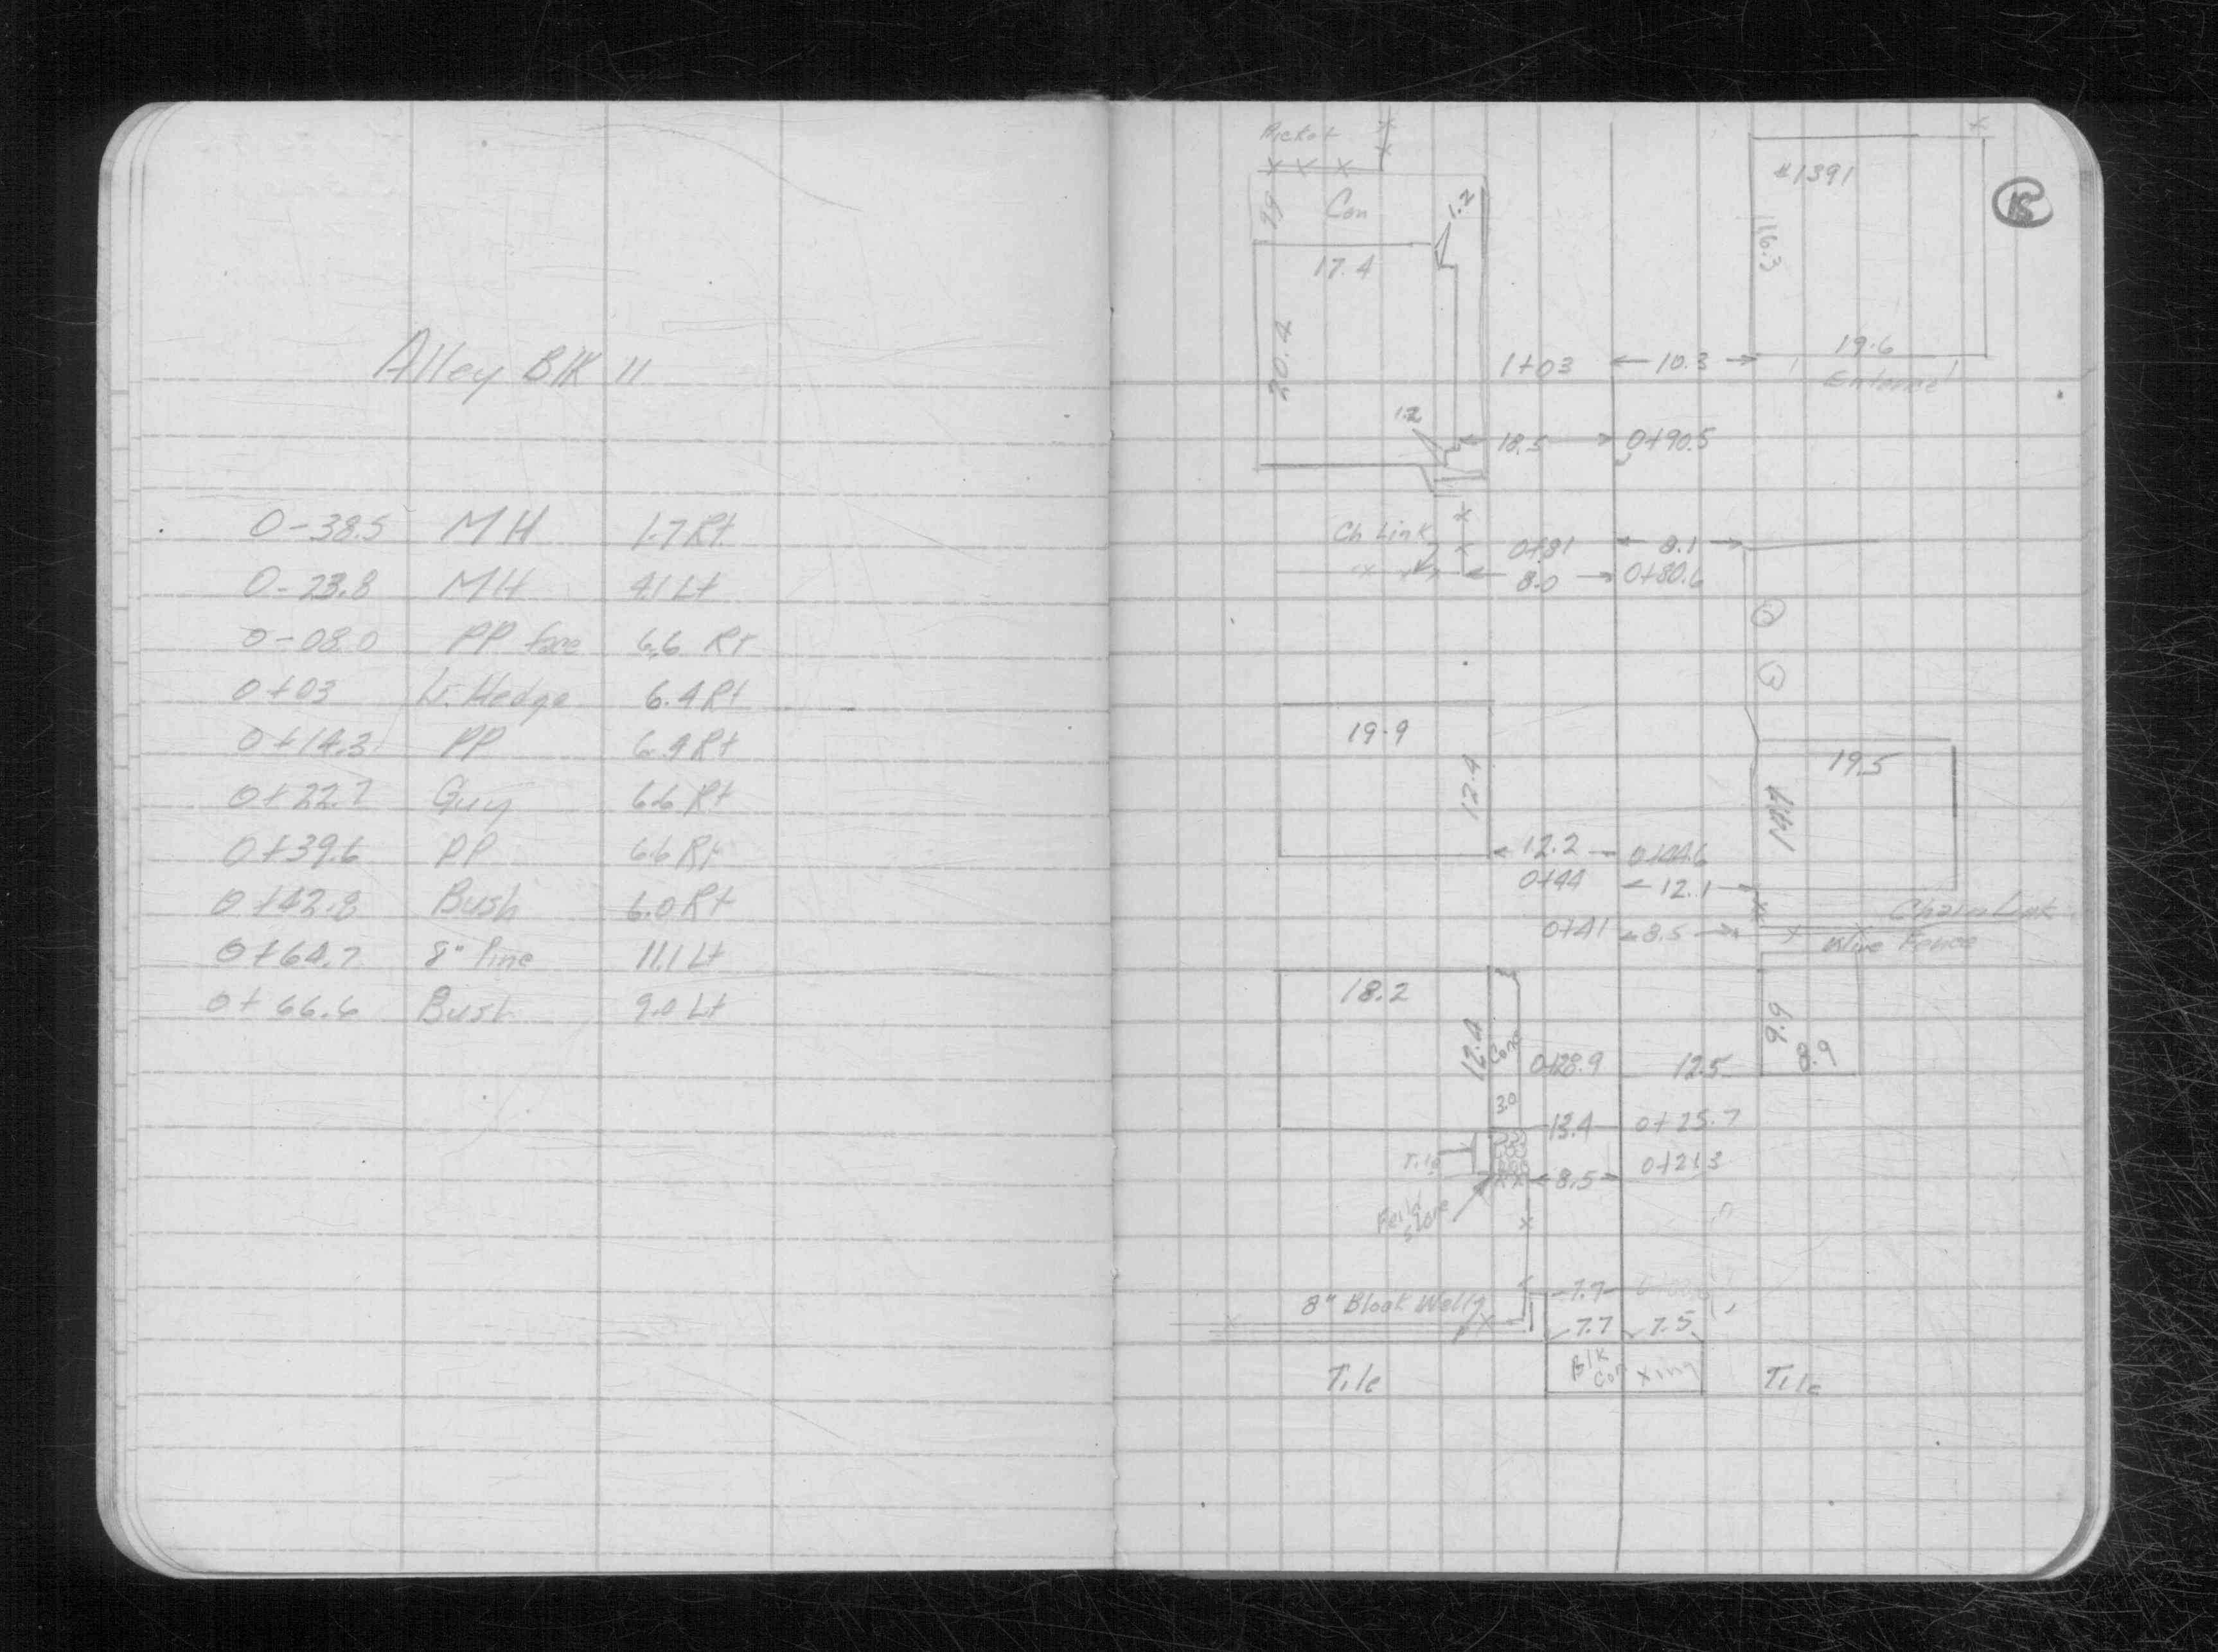 Alley Blk 11
0-38.5 MH 1.7 Rt
0-23.8 MH 4.1 Lt
0-08.0 PP face 6.6 Rt
0+03 Hedge 6.4 Rt
0+14.3 PP 6.4 Rt
0+22.7 Guy 6.6 Rt
0+39.6 PP 6.6 Rt
0+42.8 Bush 6.0 Rt
0+64.7 8" Pine 11.1 Lt
0+66.6 Bush 9.0 Lt
Picket
#1391
Con 1.2
17.4
16.3
20.4
19.6
1+03 10.3
1.2
18.5 0+90.5
Ch Link
0+81 8.1
8.0 0+80.6
19.9
12.4
19.5
12.2 0+44.6
0+44 12.1
Chain Link
0+41 8.5
Wire Fence
18.2
12.4
Conc
9.9
8.9
0+28.9 12.5
3.0
13.4 0+25.7
Tile
0+21.3
8.5
Feild
Stone
7.7
8" Block Wall
7.7 7.5
Tile
Blk
Con Xing
Tile